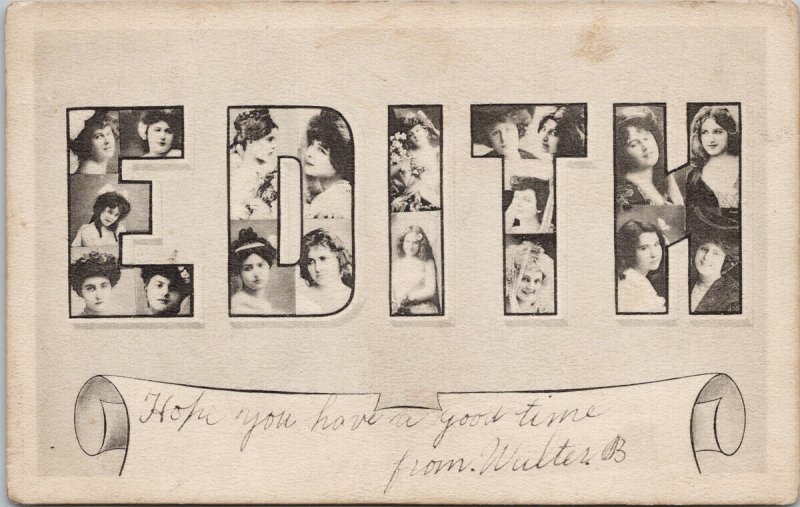 EDITH
Hope you have a good time
from. Walter. B